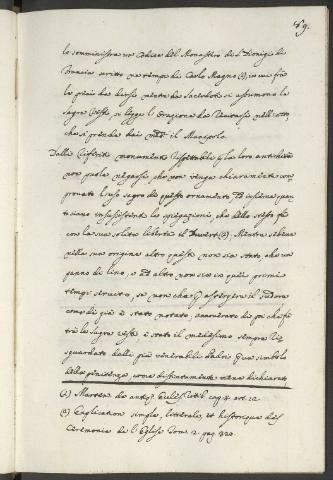 49.
lo somministra un Codice del Monastero di S. Dionigi di
Francia scritto ne' tempi di Carlo Magno (1), in cui fra
le preci da dirsi mentre da' Sacerdoti si assumono le
Sagre Vesti, si legge l'Orazione da recitarsi nell'atto,
che si prende dai med.mi il Manipolo.
Dalli riferiti monumenti rispettabili per la loro antichità
non puole negarsi, che non venga chiaramente com-
provato l'uso sagro di questo ornamento, ed insieme quan-
to siano insussistenti le spiegazioni, che dello stesso fa
con la sua solita libertà il Dewert (2). Mentre sebbene
nella sua origine altro questo non sia stato, che un
panno di lino, e ad altro non sia in quei primi
tempi servito, se non che per astergere il sudore
come di già è stato notato, annoverato di poi che fù
trà le sagre vesti è stato il medesimo sempre ri-
sguardato dalli più venerabili Padri qual simbolo
della penitenza, come distintamente viene dichiarato
(1) Marten. de antiq. Eccles. ritib. cap. 4. art. 12.
(2) Explication simple, litterale, et historique des
Ceremonies de l'Eglise Tom. 2. pag. 320.